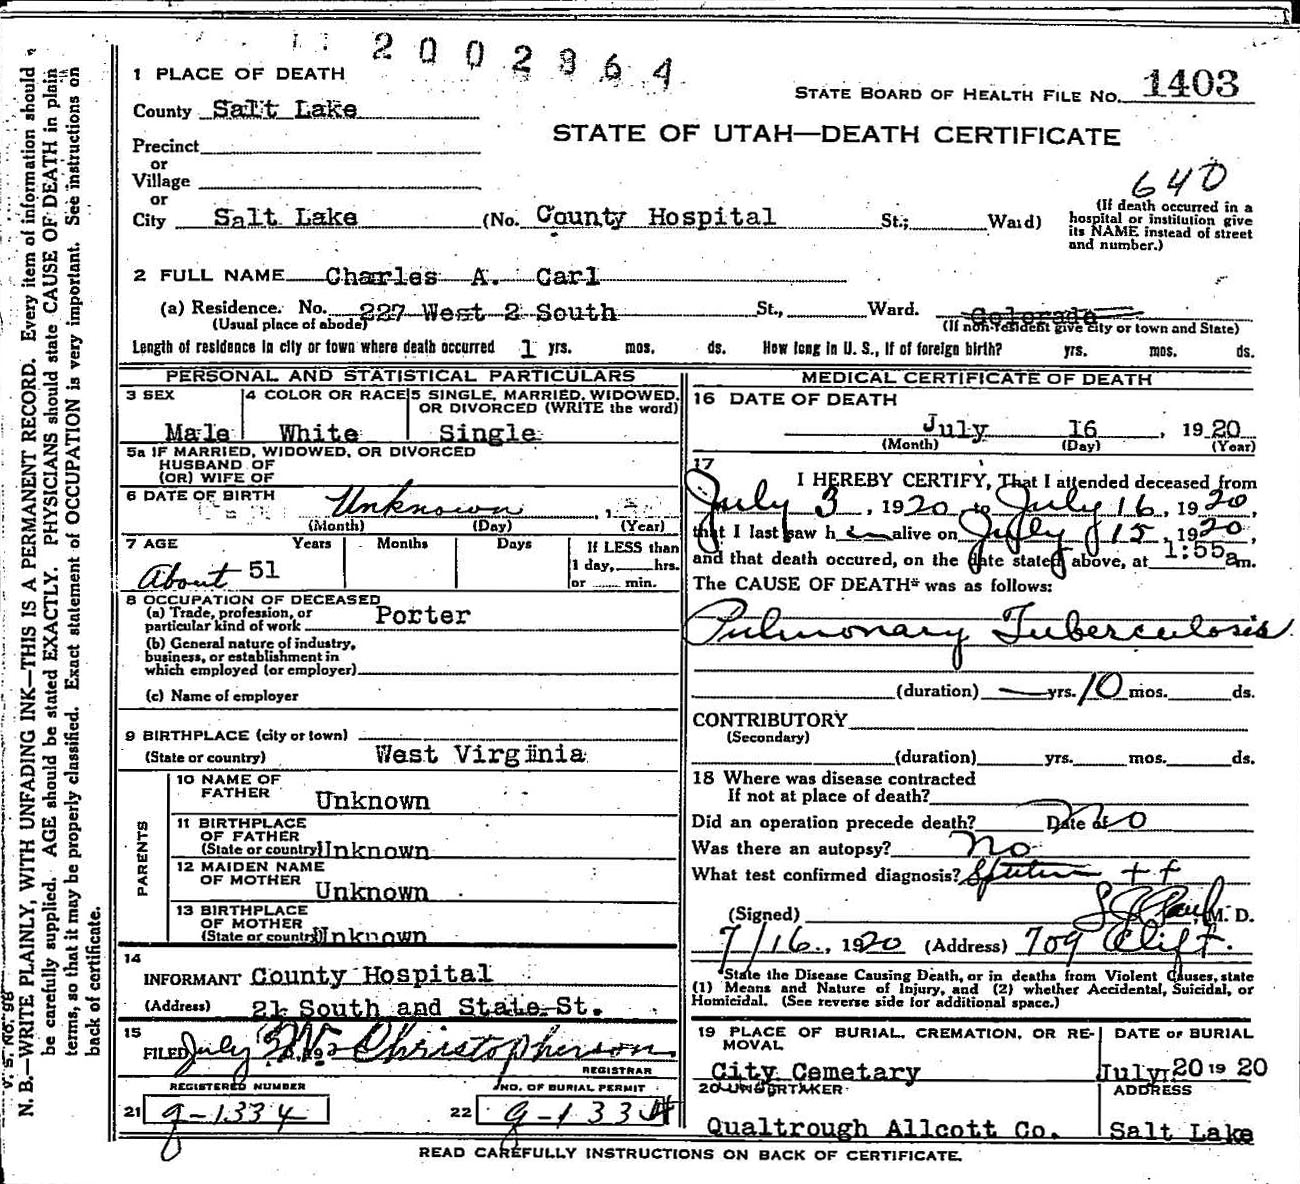 2002864
1 PLACE OF DEATH
STATE BOARD OF HEALTH FILE NO. 1403
County Salt Lake
STATE OF UTAH—DEATH CERTIFICATE
Precinct
or
Village
or
640
City Salt Lake (No. County Hospital St.; Ward)
(If death occurred in a
hospital or institution give
its NAME instead of street
and number.)
2 FULL NAME Charles A. Carl
(a) Residence. No. 227 West 2 South St., Ward. Colorado
(Usual place of abode) (If non-resident give city or town and State)
Length of residence in city or town where death occurred 1 yrs. mos. ds. How long in U. S., if of foreign birth? yrs. mos. ds.
PERSONAL AND STATISTICAL PARTICULARS
3 SEX
Male
4 COLOR OR RACE
White
5 SINGLE, MARRIED, WIDOWED,
OR DIVORCED (WRITE the word)
Single
5a IF MARRIED, WIDOWED, OR DIVORCED
HUSBAND OF
(OR) WIFE OF
6 DATE OF BIRTH Unknown , 1
(Month) (Day) (Year)
7 AGE Years Months Days If LESS than
1 day, hrs.
or min.
About 51
8 OCCUPATION OF DECEASED
(a) Trade, profession, or
particular kind of work Porter
(b) General nature of industry,
business, or establishment in
which employed (or employer)
(c) Name of employer
9 BIRTHPLACE (city or town)
(State or country) West Virginia
PARENTS
10 NAME OF
FATHER Unknown
11 BIRTHPLACE
OF FATHER
(State or country) Unknown
12 MAIDEN NAME
OF MOTHER Unknown
13 BIRTHPLACE
OF MOTHER
(State or country) Unknown
14
INFORMANT County Hospital
(Address) 21 South and State St.
15
FILED July Christopherson
REGISTRAR
REGISTERED NUMBER NO. OF BURIAL PERMIT
21 g-1334 22 g-1334
MEDICAL CERTIFICATE OF DEATH
16 DATE OF DEATH
July 16 , 1920
(Month) (Day) (Year)
17
I HEREBY CERTIFY, That I attended deceased from
July 3 , 1920 to July 16 , 1920,
that I last saw h im alive on July 15 , 1920,
and that death occured, on the date stated above, at 1:55a m.
The CAUSE OF DEATH* was as follows:
Pulmonary Tuberculosis
(duration) — yrs. 10 mos. ds.
CONTRIBUTORY
(Secondary)
(duration) yrs. mos. ds.
18 Where was disease contracted
If not at place of death?
Did an operation precede death? No Date of
Was there an autopsy? No
What test confirmed diagnosis? Sputum + +
(Signed) , M. D.
7/16, 1920 (Address) 709 Clift.
State the Disease Causing Death, or in deaths from Violent Causes, state
(1) Means and Nature of Injury, and (2) whether Accidental, Suicidal, or
Homicidal. (See reverse side for additional space.)
19 PLACE OF BURIAL, CREMATION, OR RE-
MOVAL
City Cemetary
DATE OF BURIAL
July 20 19 20
20 UNDERTAKER
Qualtrough Allcott Co.
ADDRESS
Salt Lake
READ CAREFULLY INSTRUCTIONS ON BACK OF CERTIFICATE.
V. S. No. 98
N. B.—WRITE PLAINLY, WITH UNFADING INK—THIS IS A PERMANENT RECORD. Every item of information should
be carefully supplied. AGE should be stated EXACTLY. PHYSICIANS should state CAUSE OF DEATH in plain
terms, so that it may be properly classified. Exact statement of OCCUPATION is very important. See instructions on
back of certificate.